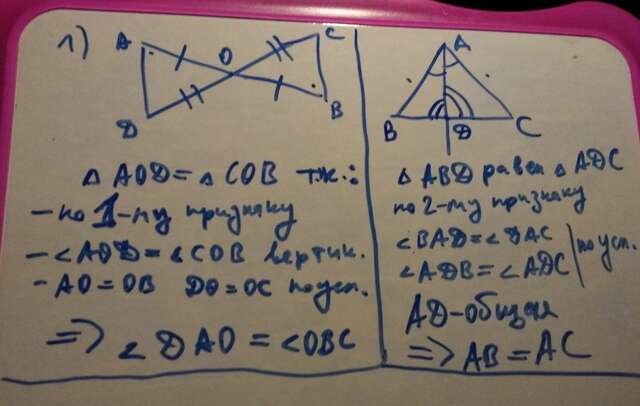 1)
A
O
C
D
B
△ AOD = △ COB т.к.:
- по 1-му признаку
- ∠AOD = ∠COB вертик.
- AO = OB DO = OC по усл.
=> ∠DAO = ∠OBC
A
B
D
C
△ ABD равен △ ADC
по 2-му признаку
∠BAD = ∠DAC
∠ADB = ∠ADC
по усл.
AD - общая
=> AB = AC